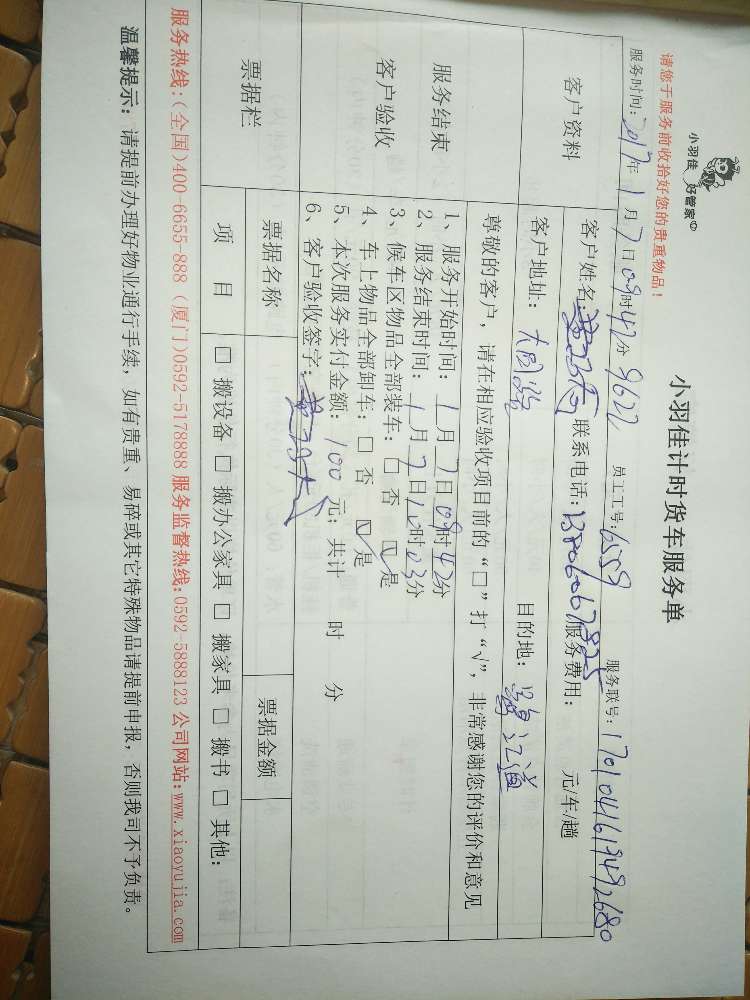 小羽佳 好管家
小羽佳计时货车服务单
请您于服务前收拾好您的贵重物品！
服务时间：2017年1月7日09时42分 9622 员工工号：6559 服务联号：1701041619492680
客户资料
客户姓名： 联系电话：13806067825 服务费用： 元/车/趟
客户地址： 目的地：
服务结束
客户验收
尊敬的客户，请在相应验收项目前的“□”打“√”，非常感谢您的评价和意见
1、服务开始时间：1月7日09时42分
2、服务结束时间：1月7日10时03分
3、候车区物品全部装车：□ 否 ☑ 是
4、车上物品全部卸车：□ 否 ☑ 是
5、本次服务实付金额：100元；共计 时 分
6、客户验收签字：
票据栏
票据名称 票据金额
项 目 □ 搬设备 □ 搬办公家具 □ 搬家具 □ 搬书 □ 其他：
服务热线：(全国)400-6655-888 (厦门)0592-5178888 服务监督热线:0592-5888123 公司网站:www.xiaoyujia.com
温馨提示：请提前办理好物业通行手续，如有贵重、易碎或其它特殊物品请提前申报，否则我司不予负责。